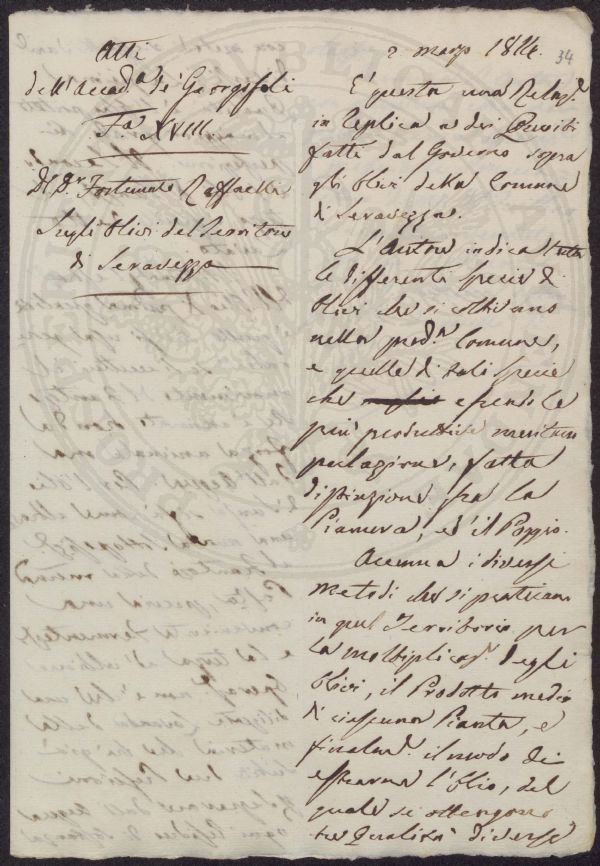 Atti
dell'Accad.a de' Georgofili
F.a XVIII.
Del D.r Fortunato Raffaelli
Sugli Olivi del Territorio
di Seravezza
2 marzo 1814.
34
E' questa una Relaz.e
in replica a dei Quesiti
fatti dal Governo sopra
gli Olivi della Comune
di Seravezza.
L'Autore indica tutte
le differenti specie di
Olivi che si coltivano
nella pred.a Comune,
e quelle di tali specie
che essendo le
più produttive meritano
, fatta
distinzione fra la
Pianura, ed il Poggio.
Accenna i diversi
metodi che si praticano
in quel Territorio per
la moltiplicaz.e degli
Olivi, il Prodotto medio
di ciascuna Pianta, e
finalm.e il modo di
estrarne l'Olio, del
quale si ottengono
tre Qualità diverse